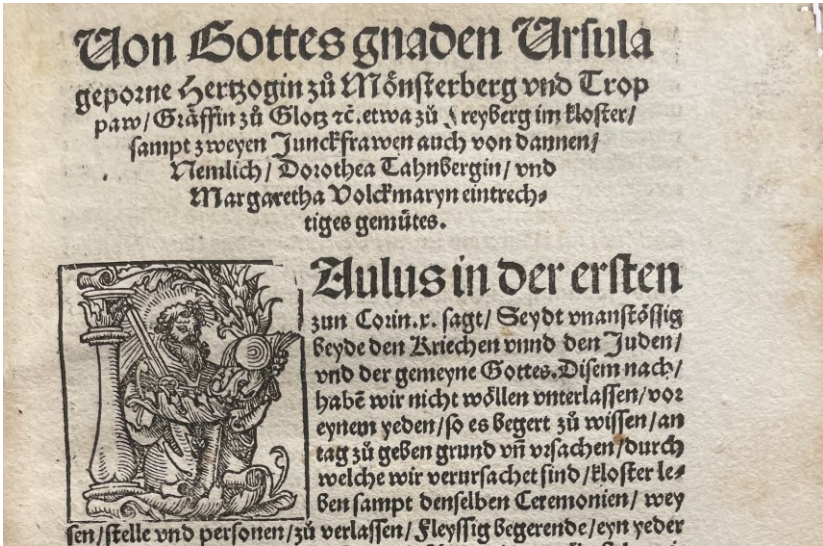 Von Gottes gnaden Vrsula
geporne Hertzogin zů Mönsterberg vnd Trop
paw/ Gräffin zů Glotz ꝛc̄. etwa zů Freyberg im kloster/
sampt zweyen Junckfrawen auch von dannen/
Nemlich/ Dorothea Tahnbergin/ vnd
Margaretha Volckmaryn eintrech⸗
tiges gemütes.
PAulus in der ersten
zun Corin.x. sagt/ Seydt vnanstössig
beyde den Kriechen vnnd den Juden/
vnd der gemeyne Gottes. Disem nach/
habē wir nicht wöllen vnterlassen/ vor
eynem yeden/ so es begert zů wissen/ an
tag zů geben grund vñ vrsachen/ durch
welche wir verursachet sind/ kloster le⸗
ben sampt denselben Ceremonien/ wey
sen/ stelle vnd personen/ zů verlassen/ Fleyssig begerende/ eyn yeder